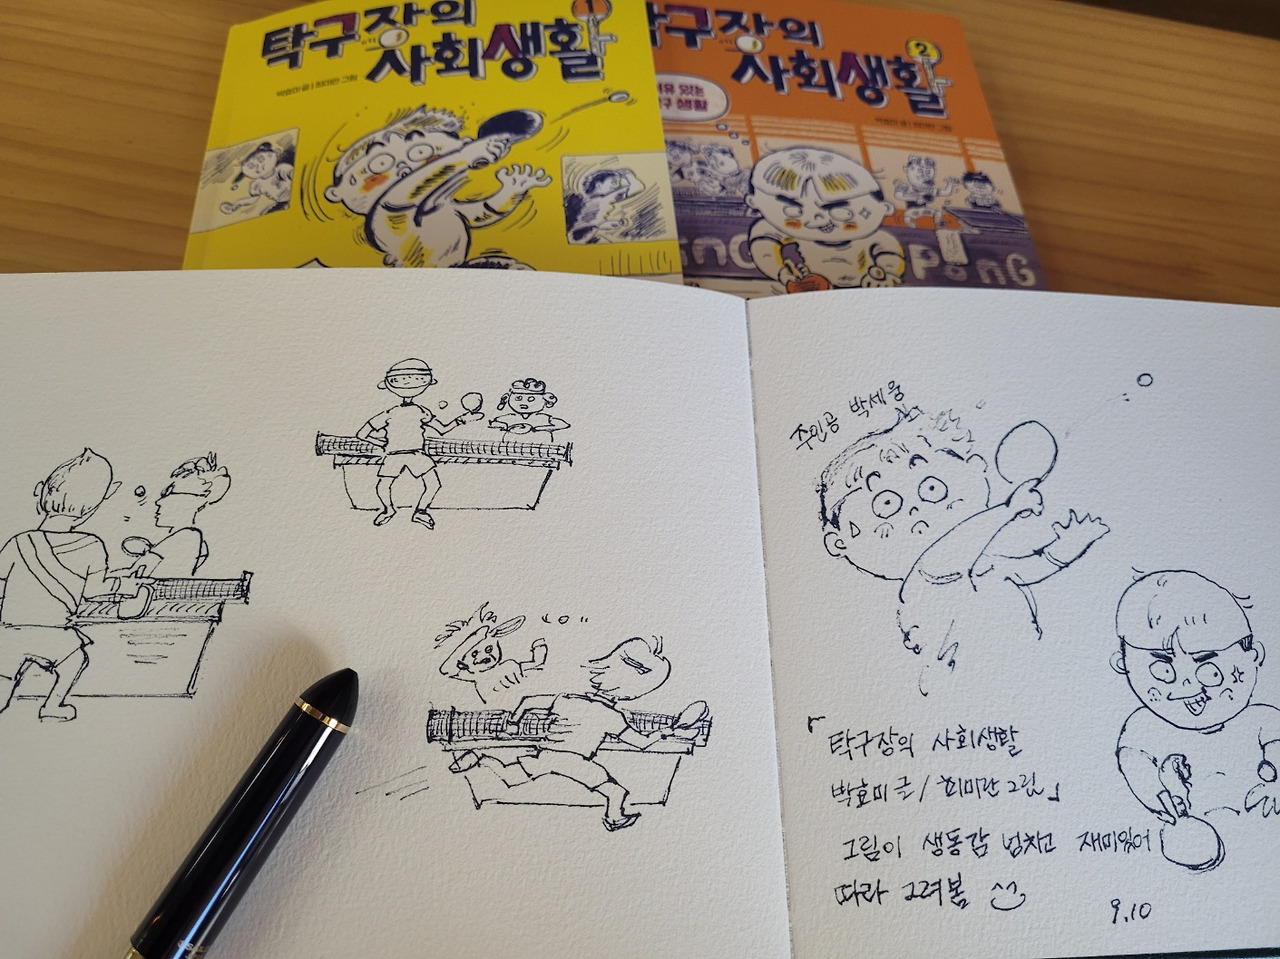 탁구장의
사회생활
1
박효미 글 | 최미란 그림
탁구장의
사회생활
2
유 있는
구 생활
박효미 글 | 최미란 그림
PONG
주인공 박세웅
「탁구장의 사회생활
박효미 글 / 최미란 그림」
그림이 생동감 넘치고 재미있어
따라 그려봄
9.10